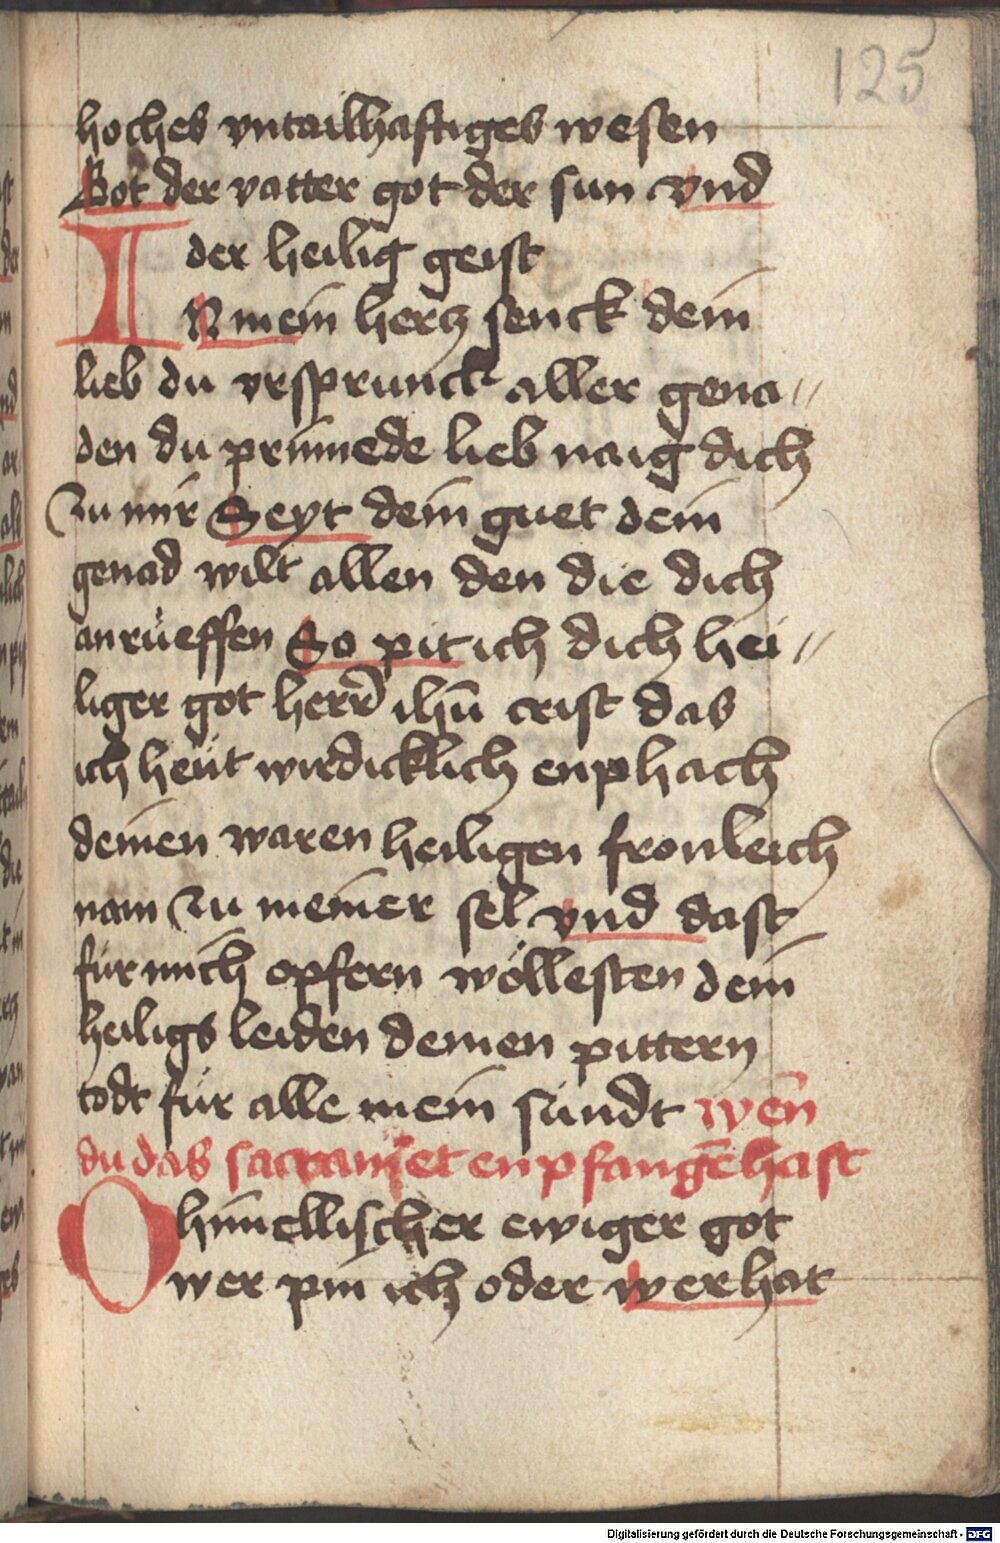 125
hoches vntailhaftiges wesen
Got der vatter got der sun vnd
der heilig geist
IN mein hercz senck dein
lieb du vrsprunck aller gena〃
den du prinnede lieb naig dich
zu mir Seyt dein guet dein
genad wilt allen den die dich
anrüeffen So pit ich dich hei〃
liger got herr ihū crist das
ich heüt wirdicklich enphach
deinen waren heiligen fronleich
nam zu meiner sel vnd dast
für mich opfern wöllesten dein
heiligs leiden deinen pittern
todt für alle mein sündt wen̄
du das sacramēt enpfangē hast
O himellischer ewiger got
wer pin ich oder wer hat
Digitalisierung gefördert durch die Deutsche Forschungsgemeinschaft - DFG